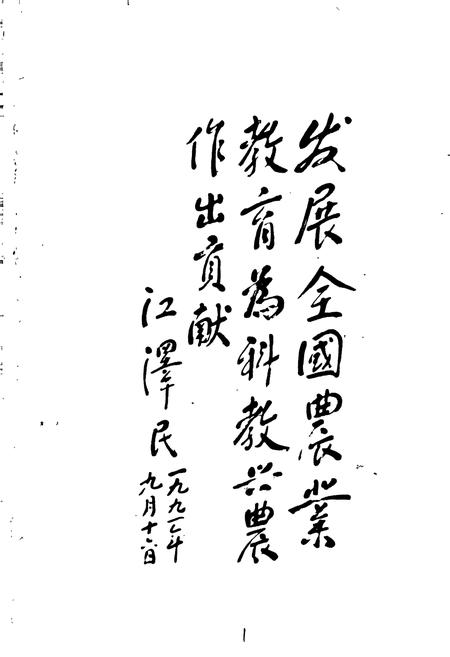 发展全國農業
教育為科教兴農
作出貢献
江澤民
一九九一年
九月十六日
1